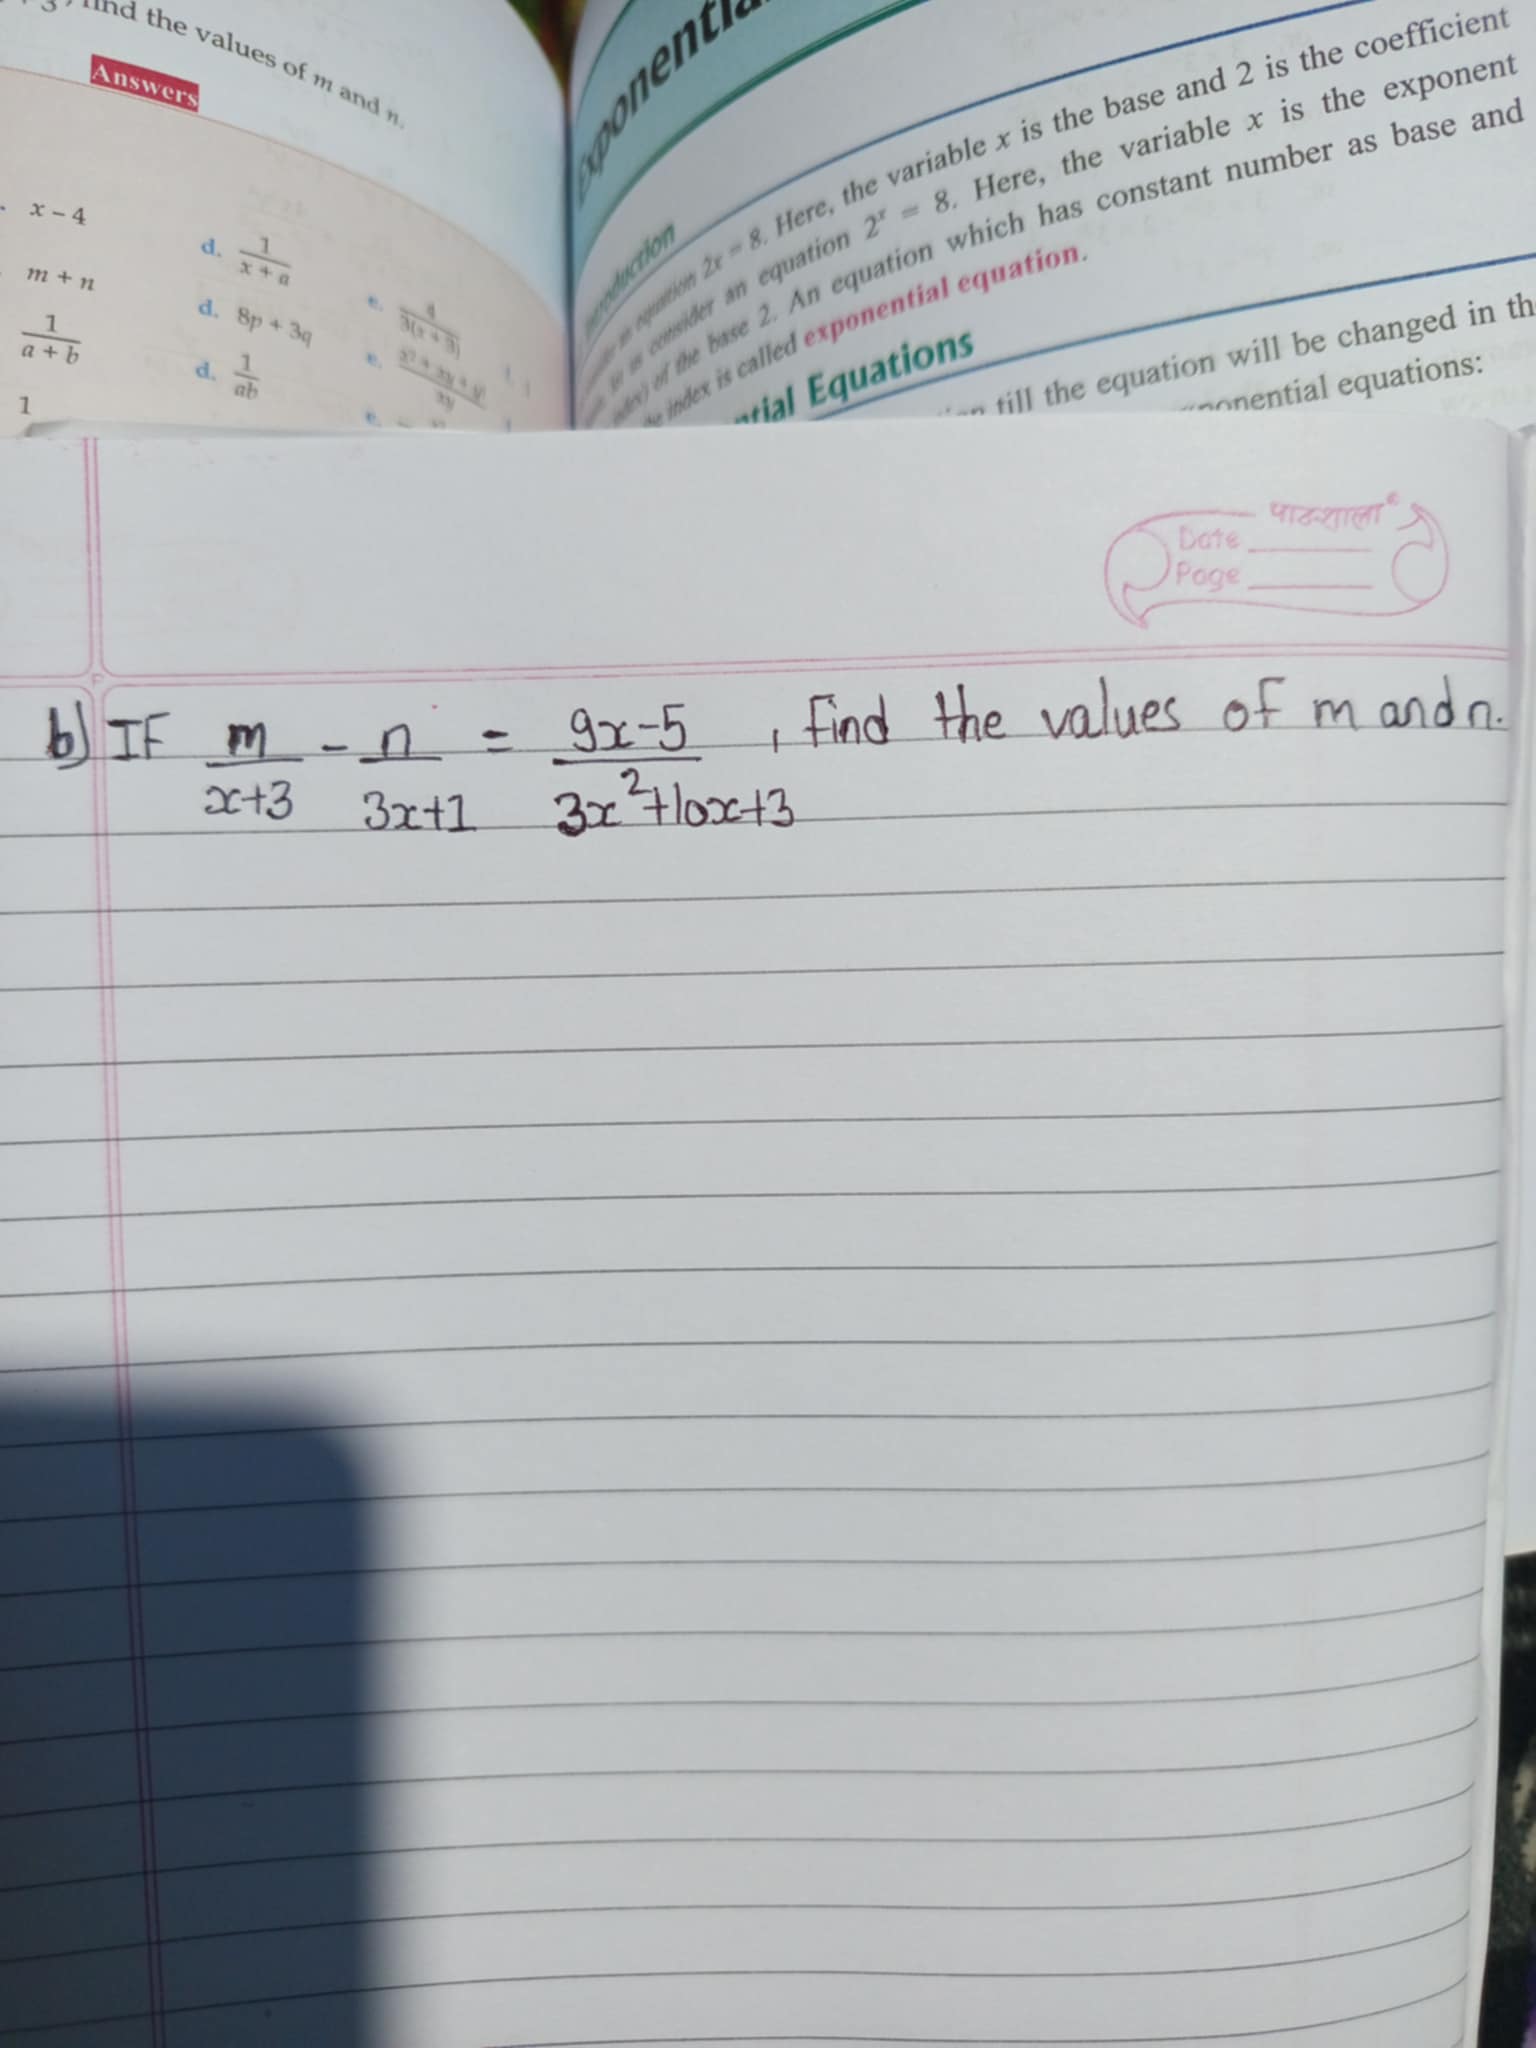 find the values of m and n.
Answers
x – 4
d. 1/(x + a)
m + n
d. 8p + 3q
e. 4/(3(x + 3))
1/(a + b)
d. 1/ab
e. (x² + xy + y²)/xy
1
e.
Exponential
Introduction
equation 2x = 8. Here, the variable x is the base and 2 is the coefficient
us consider an equation 2ˣ = 8. Here, the variable x is the exponent
(index) of the base 2. An equation which has constant number as base and
the index is called exponential equation.
Equations
till the equation will be changed in
equations:
पाठशाला
Date
Page
b) IF m/(x+3) - n/(3x+1) = (9x-5)/(3x²+10x+3), find the values of m and n.